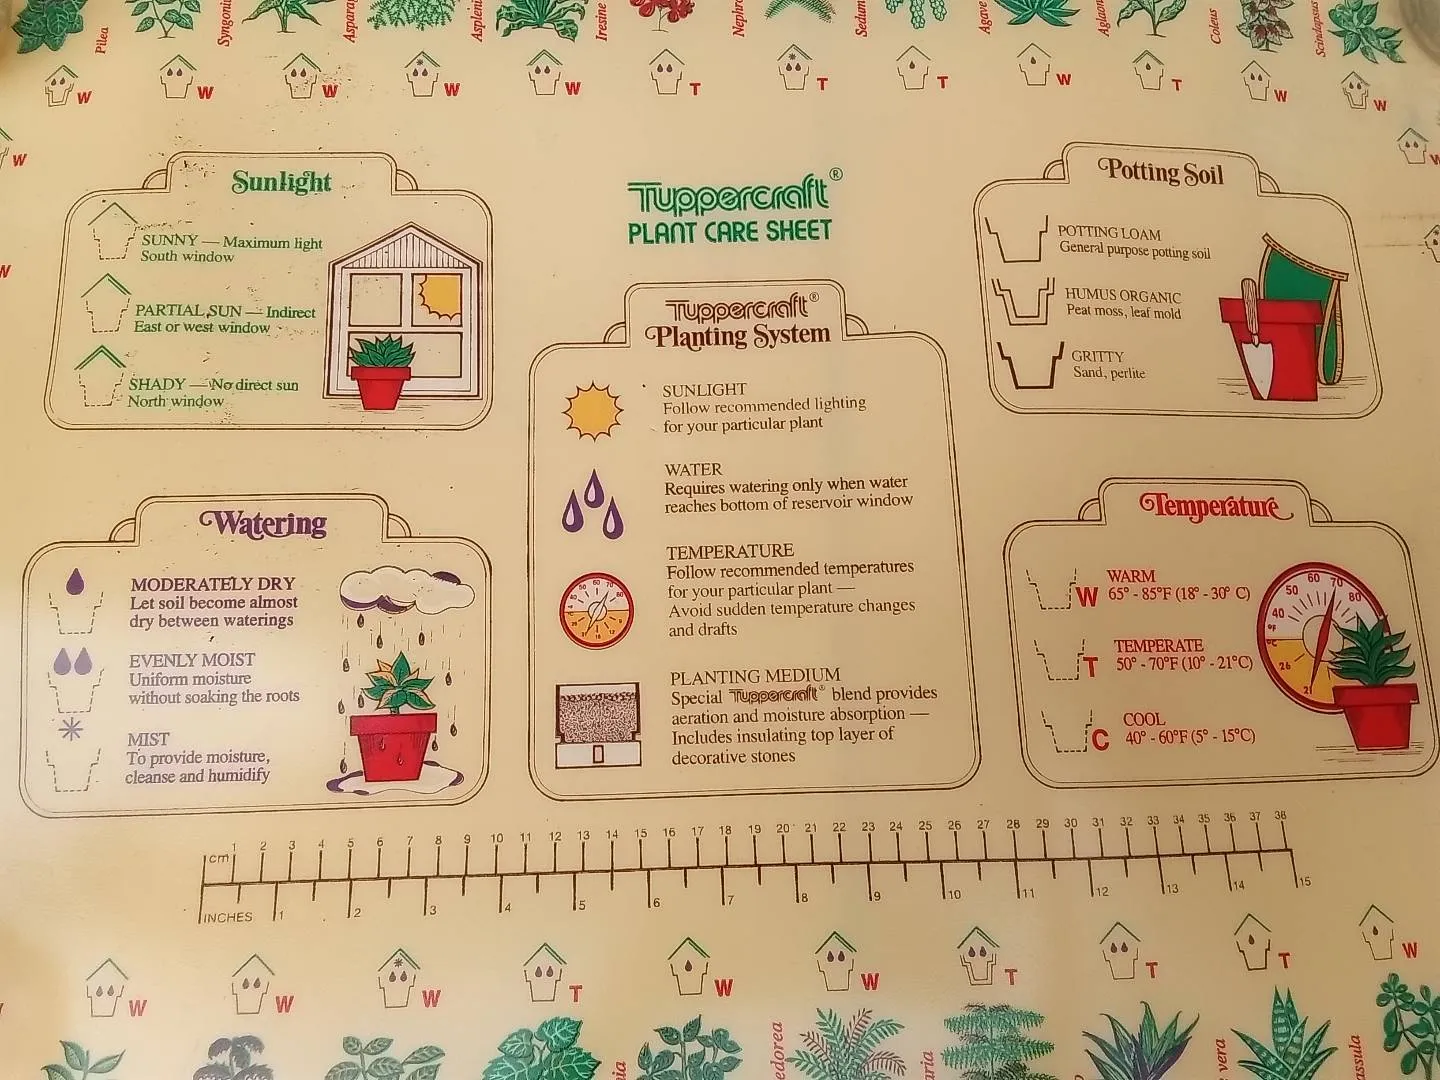 Pilea
Asparag
Iresine
Sedum
Agave
Coleus
Scindapsus
W W W W W T T T W T W W
W
W
W
Sunlight
SUNNY — Maximum light
South window
PARTIAL SUN — Indirect
East or west window
SHADY — No direct sun
North window
Tuppercraft®
PLANT CARE SHEET
Potting Soil
POTTING LOAM
General purpose potting soil
HUMUS ORGANIC
Peat moss, leaf mold
GRITTY
Sand, perlite
Tuppercraft®
Planting System
SUNLIGHT
Follow recommended lighting
for your particular plant
WATER
Requires watering only when water
reaches bottom of reservoir window
TEMPERATURE
Follow recommended temperatures
for your particular plant —
Avoid sudden temperature changes
and drafts
PLANTING MEDIUM
Special Tuppercraft® blend provides
aeration and moisture absorption —
Includes insulating top layer of
decorative stones
Watering
MODERATELY DRY
Let soil become almost
dry between waterings
EVENLY MOIST
Uniform moisture
without soaking the roots
MIST
To provide moisture,
cleanse and humidify
Temperature
W WARM
65° - 85°F (18° - 30° C)
T TEMPERATE
50° - 70°F (10° - 21°C)
C COOL
40° - 60°F (5° - 15°C)
40 50 60 70 80
26 21
cm 1 2 3 4 5 6 7 8 9 10 11 12 13 14 15 16 17 18 19 20 21 22 23 24 25 26 27 28 29 30 31 32 33 34 35 36 37 38
INCHES 1 2 3 4 5 6 7 8 9 10 11 12 13 14 15
W W W T W W T T T W
edorea
aria
vera
assula